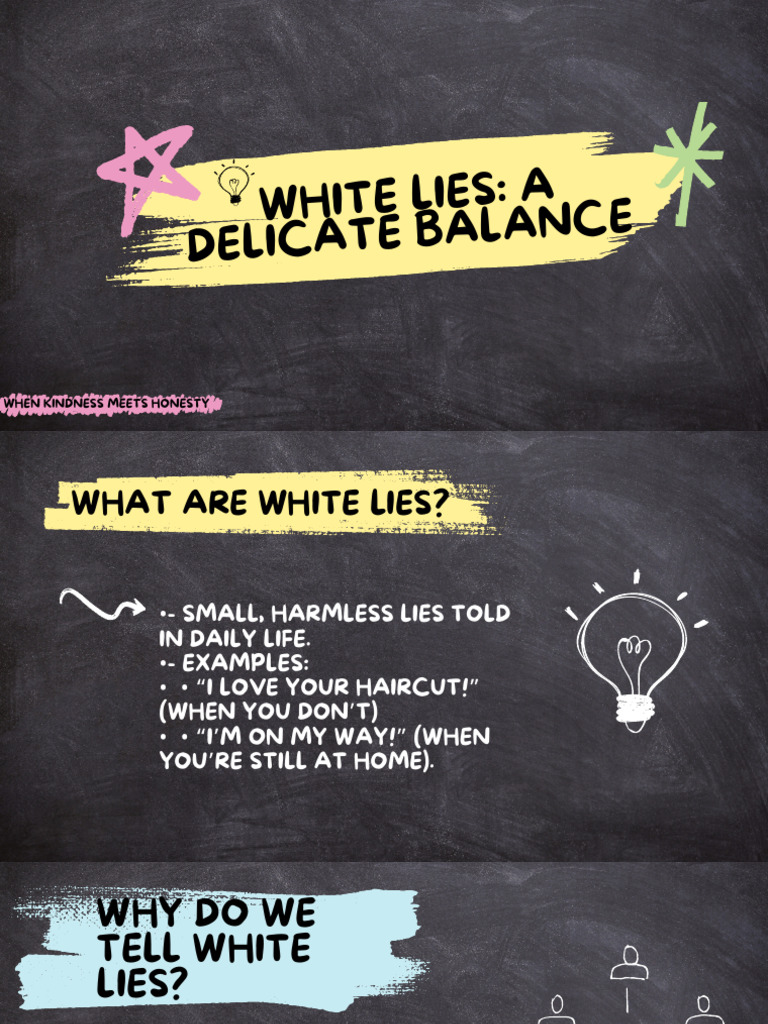 WHITE LIES: A
DELICATE BALANCE
WHEN KINDNESS MEETS HONESTY
WHAT ARE WHITE LIES?
•- SMALL, HARMLESS LIES TOLD
IN DAILY LIFE.
•- EXAMPLES:
• • “I LOVE YOUR HAIRCUT!”
(WHEN YOU DON’T)
• • “I’M ON MY WAY!” (WHEN
YOU’RE STILL AT HOME).
WHY DO WE
TELL WHITE
LIES?